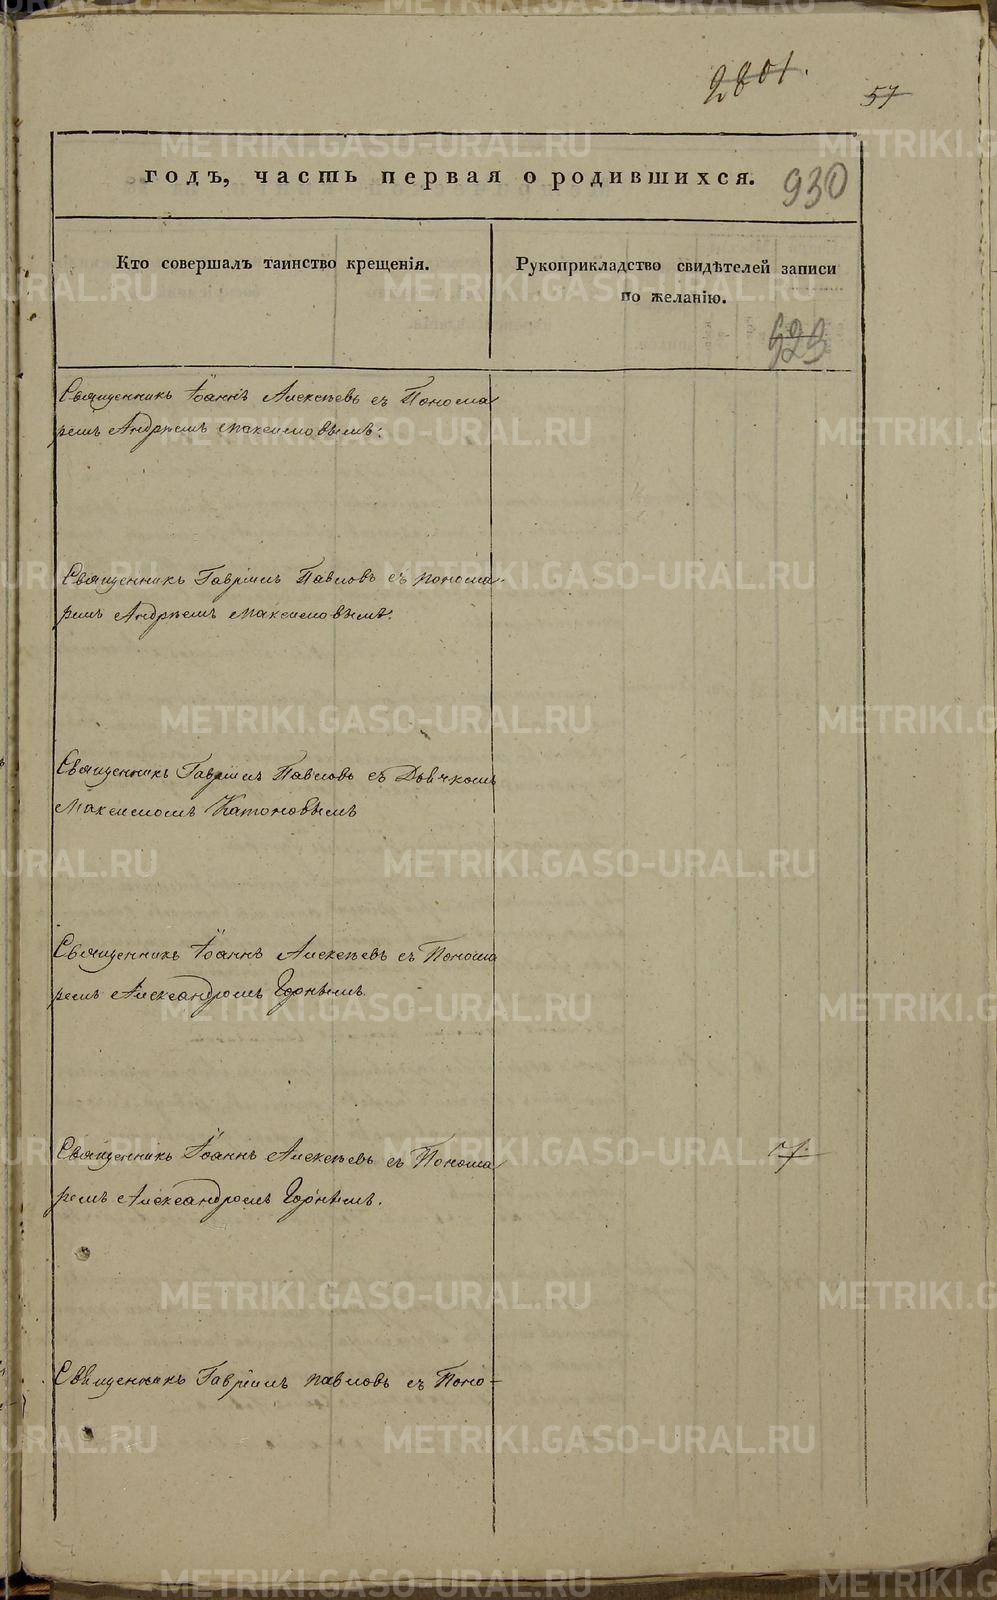 2801.
57
годъ, часть первая о родившихся.
930
Кто совершалъ таинство крещенія.
Рукоприкладство свидѣтелей записи
по желанію.
929
Священникъ Іоаннъ Алексѣевъ съ Понома
ремъ Андрѣемъ Максимовымъ.
Священникъ Гавріилъ Павловъ съ понома
ремъ Андрѣемъ Максимовымъ.
Священникъ Гавріилъ Павловъ съ Дьячкомъ
Максимомъ Катоновымъ
Священникъ Іоаннъ Алексѣевъ съ Понома
ремъ Александромъ Горнымъ
Священникъ Іоаннъ Алексѣевъ съ Понома
ремъ Александромъ Горнымъ.
Священникъ Гавріилъ Павловъ съ Поно-
METRIKI.GASO-URAL.RU